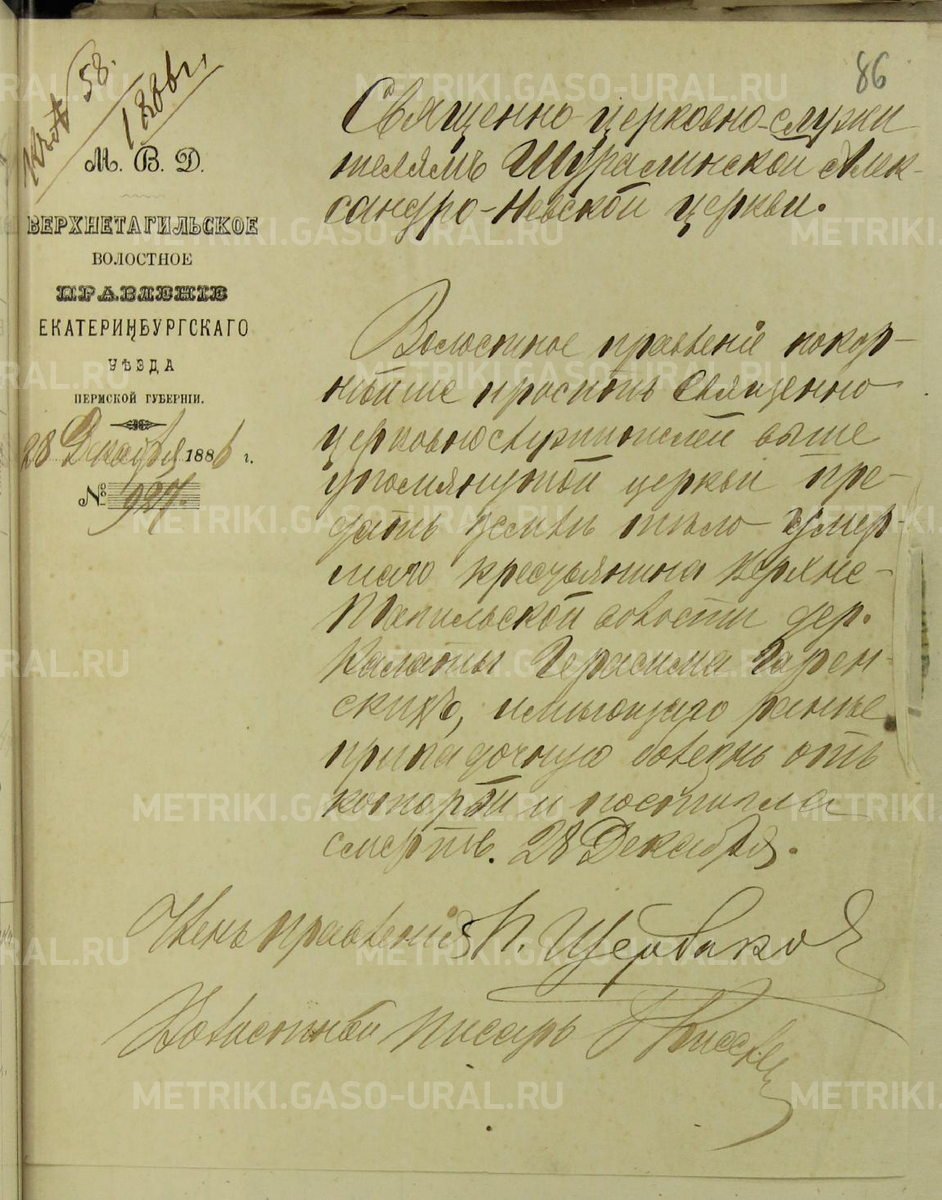 86
58.
1886 г.
М. В. Д.
ВЕРХНЕТАГИЛЬСКОЕ
ВОЛОСТНОЕ
ПРАВЛЕНІЕ
ЕКАТЕРИНБУРГСКАГО
УѢЗДА
ПЕРМСКОЙ ГУБЕРНІИ.
28 Декабря 1886 г.
№ 927.
Священно-церковно-служи
телямъ Шуралинской Алек-
сандро-Невской церкви.
Волостное правленіе покор-
нѣйше проситъ Священно
церковнослужителей выше
упомянутой церкви пре-
дать землѣ тѣло умер-
шаго крестьянина Верхне-
Тагильской волости дер.
Калаты Герасима Гарен-
скихъ, имѣющаго ранѣе
припадочную болезнь отъ
которой и постигла
смерть. 28 Декабря.
Членъ Правленія П. Щербаковъ
Волостной писарь
METRIKI.GASO-URAL.RU